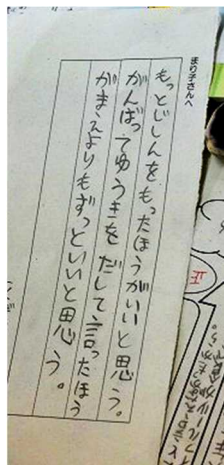 まり子さんへ
もっとじしんをもったほうがいいと思う。
がんばってゆうきをだして言ったほう
がまえよりもずっといいと思う。
正